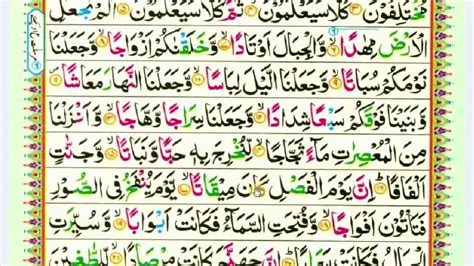 مُخْتَلِفُوْنَ ۝۳ كَلَّا سَيَعْلَمُوْنَ ۝۴ ثُمَّ كَلَّا سَيَعْلَمُوْنَ ۝۵ اَلَمْ نَجْعَلِ
الْاَرْضَ مِهٰدًا ۝۶ وَّالْجِبَالَ اَوْتَادًا ۝۷ وَّخَلَقْنٰكُمْ اَزْوَاجًا ۝۸ وَّجَعَلْنَا
نَوْمَكُمْ سُبَاتًا ۝۹ وَّجَعَلْنَا الَّيْلَ لِبَاسًا ۝۱۰ وَّجَعَلْنَا النَّهَارَ مَعَاشًا ۝۱۱
وَّبَنَيْنَا فَوْقَكُمْ سَبْعًا شِدَادًا ۝۱۲ وَّجَعَلْنَا سِرَاجًا وَّهَّاجًا ۝۱۳ وَّاَنْزَلْنَا
مِنَ الْمُعْصِرٰتِ مَآءً ثَجَّاجًا ۝۱۴ لِّنُخْرِجَ بِهٖ حَبًّا وَّنَبَاتًا ۝۱۵ وَّجَنّٰتٍ
اَلْفَافًا ۝۱۶ اِنَّ يَوْمَ الْفَصْلِ كَانَ مِيْقَاتًا ۝۱۷ يَّوْمَ يُنْفَخُ فِى الصُّوْرِ
فَتَاْتُوْنَ اَفْوَاجًا ۝۱۸ وَّفُتِحَتِ السَّمَآءُ فَكَانَتْ اَبْوَابًا ۝۱۹ وَّسُيِّرَتِ
الْجِبَالُ فَكَانَتْ سَرَابًا ۝۲۰ اِنَّ جَهَنَّمَ كَانَتْ مِرْصَادًا ۝۲۱ لِّلطّٰغِيْنَ